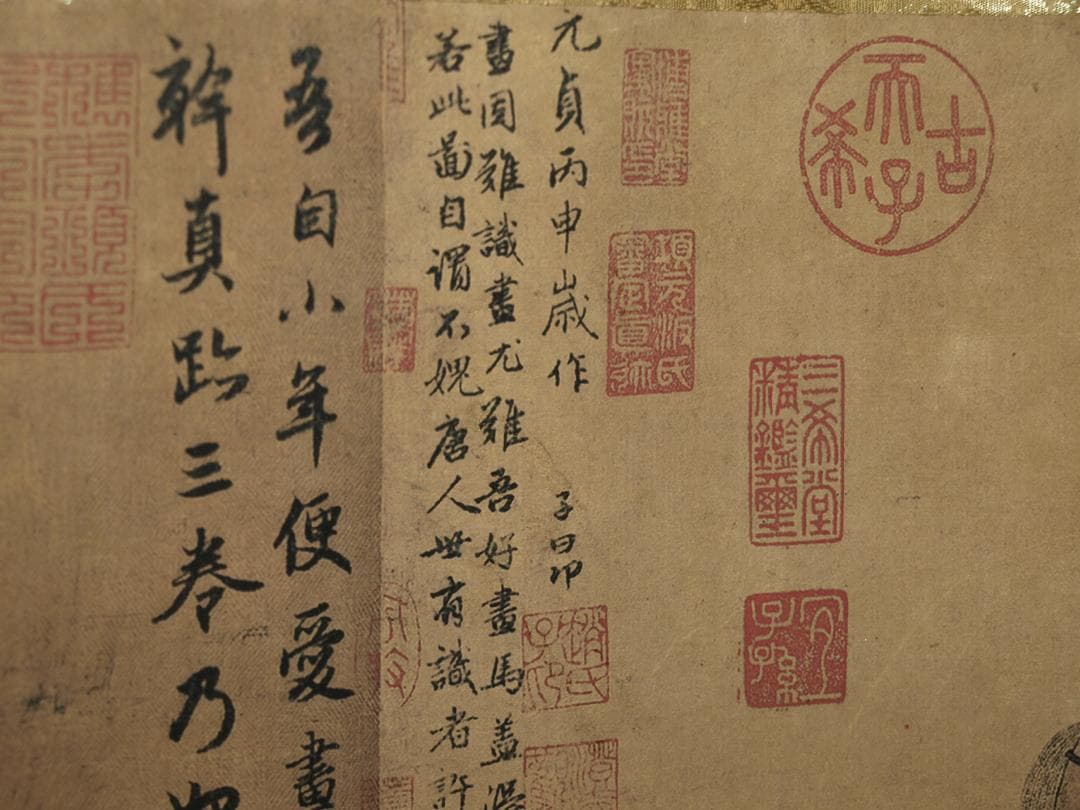 古希天子
三希堂精鑑璽
宜子孫
項元汴氏審定真跡
元貞丙申歲作
子昂
趙氏子昂
畫固難識畫尤難吾好畫馬蓋得
若此圖自謂不媿唐人世有識者許
吾自小年便愛畫
幹真跡三卷乃始